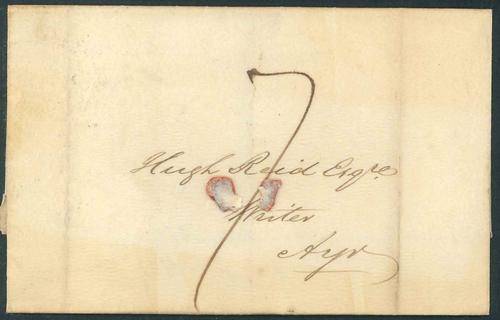 7
Hugh Reid Esqre
Writer
Ayr